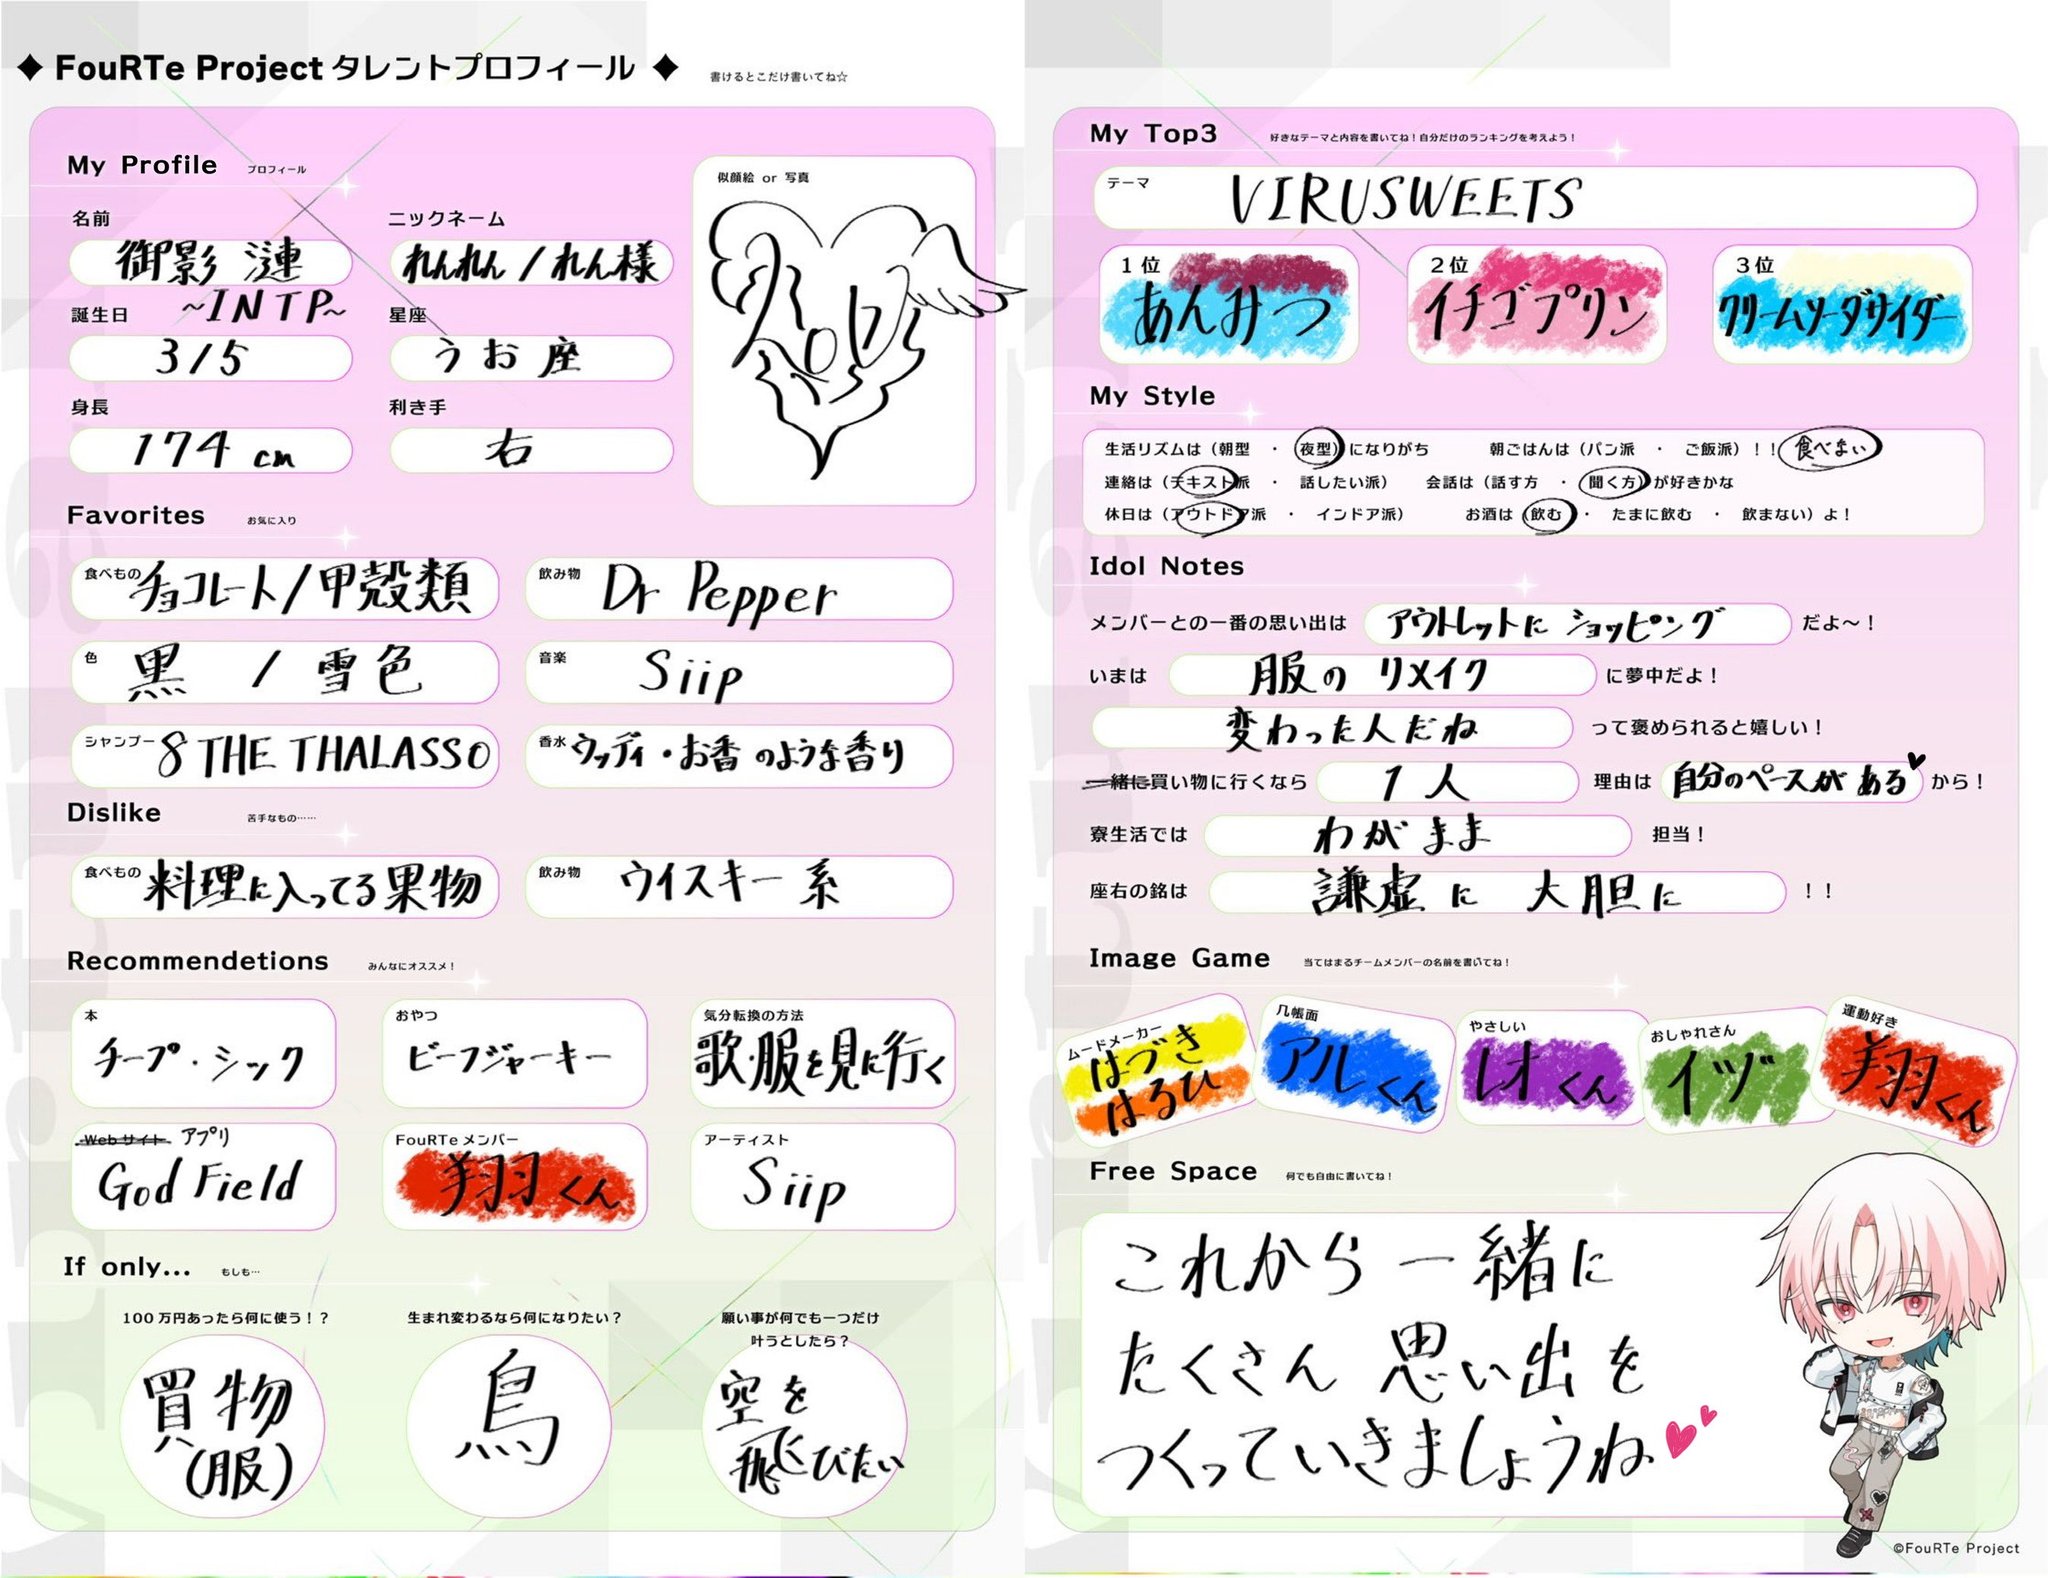 ◆ FouRTe Project タレントプロフィール ◆ 書けるとこだけ書いてね☆
My Profile プロフィール
名前 ニックネーム
御影 漣 れんれん / れん様
~INTP~
誕生日 星座
3/5 うお座
身長 利き手
174 cm 右
似顔絵 or 写真
Favorites お気に入り
食べもの チョコレート/甲殻類 飲み物 Dr Pepper
色 黒 / 雪色 音楽 Siip
シャンプー 8 THE THALASSO 香水 ウッディ・お香のような香り
Dislike 苦手なもの……
食べもの 料理に入ってる果物 飲み物 ウイスキー系
Recommendetions みんなにオススメ!
本 おやつ 気分転換の方法
チープ・シック ビーフジャーキー 歌・服を見に行く
Webサイト アプリ FouRTeメンバー アーティスト
God Field 翔くん Siip
If only... もしも…
100万円あったら何に使う!? 生まれ変わるなら何になりたい? 願い事が何でも一つだけ
叶うとしたら?
買物 鳥 空を
(服) 飛びたい
My Top3 好きなテーマと内容を書いてね!自分だけのランキングを考えよう!
テーマ VIRUSWEETS
1位 2位 3位
あんみつ イチゴプリン クリームソーダサイダー
My Style
生活リズムは(朝型 ・ 夜型)になりがち 朝ごはんは(パン派 ・ ご飯派)!! 食べない
連絡は(テキスト派 ・ 話したい派) 会話は(話す方 ・ 聞く方)が好きかな
休日は(アウトドア派 ・ インドア派) お酒は(飲む ・ たまに飲む ・ 飲まない)よ!
Idol Notes
メンバーとの一番の思い出は アウトレットにショッピング だよ~!
いまは 服のリメイク に夢中だよ!
変わった人だね って褒められると嬉しい!
一緒に買い物に行くなら 1人 理由は 自分のペースがある から!
寮生活では わがまま 担当!
座右の銘は 謙虚に 大胆に !!
Image Game 当てはまるチームメンバーの名前を書いてね!
ムードメーカー 几帳面 やさしい おしゃれさん 運動好き
はづき アルくん レオくん イヅ 翔くん
はるひ
Free Space 何でも自由に書いてね!
これから一緒に
たくさん思い出を
つくっていきましょうね
©FouRTe Project